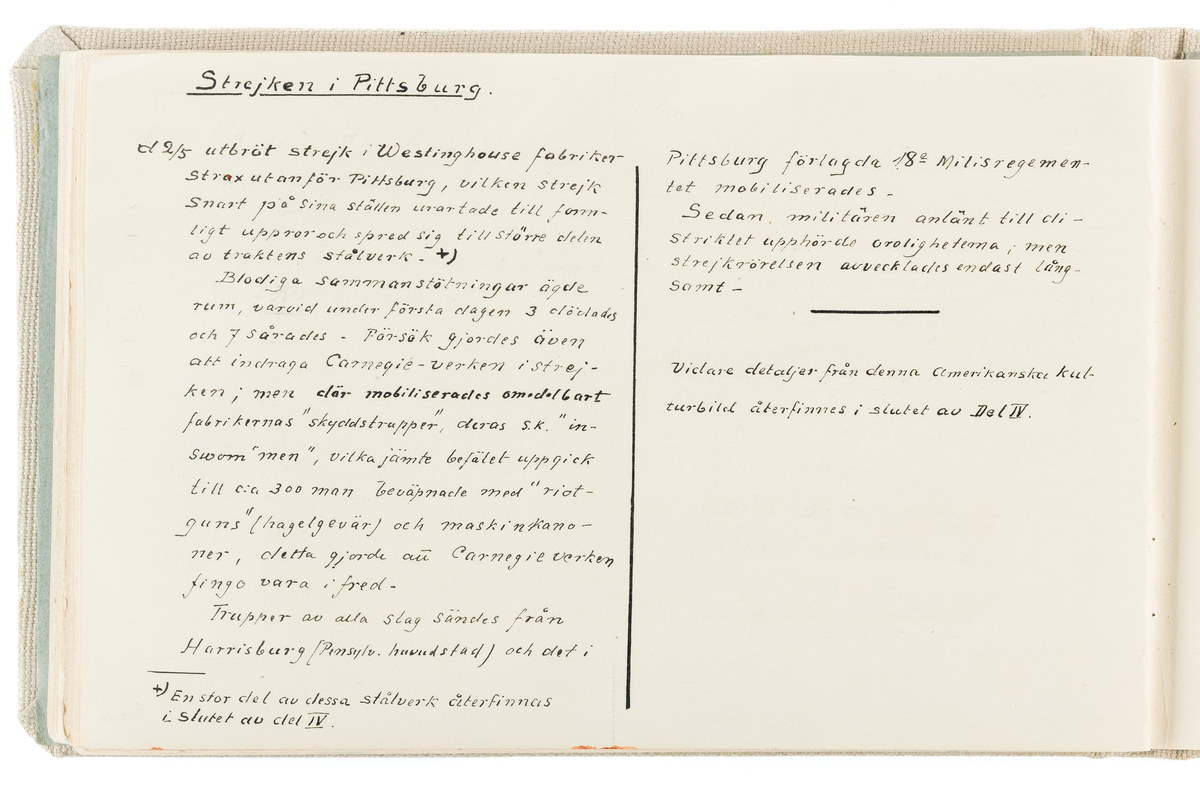 Strejken i Pittsburg.
d 2/5 utbröt strejk i Westinghouse fabriker
strax utanför Pittsburg, vilken strejk
snart på sina ställen urartade till form-
ligt uppror och spred sig till större delen
av traktens stålverk. +)
Blodiga sammanstötningar ägde
rum, varvid under första dagen 3 dödades
och 7 sårades - Försök gjordes även
att indraga Carnegie-verken i strej-
ken; men där mobiliserades omedelbart
fabrikernas "skyddstrupper", deras s.k. "in-
sworn men", vilka jämte befälet uppgick
till c:a 300 man beväpnade med "riot-
guns" (hagelgevär) och maskinkano-
ner, detta gjorde att Carnegieverken
fingo vara i fred -
Trupper av alla slag sändes från
Harrisburg (Pensylv. huvudstad) och det i
+) En stor del av dessa stålverk återfinnas
i slutet av del IV.
Pittsburg förlagda 18e Milisregemen-
tet mobiliserades -
Sedan militären anlänt till di-
striktet upphörde oroligheterna; men
strejkrörelsen avvecklades endast lång-
samt -
Vidare detaljer från denna Amerikanska kul-
turbild återfinnes i slutet av Del IV.